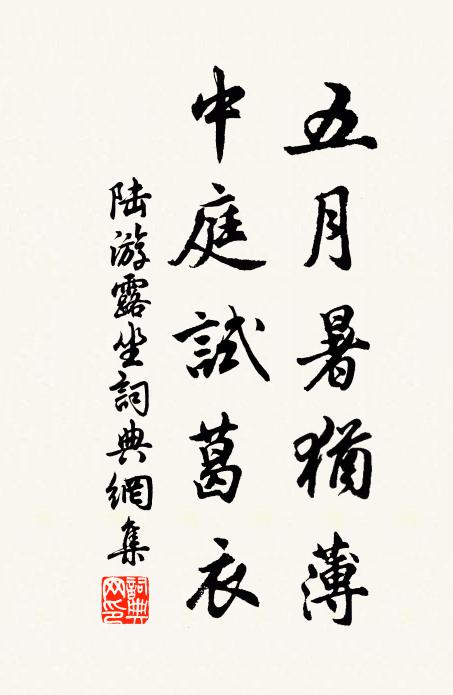 五月暑猶薄
中庭試葛衣
陆游露坐詞典網集
詞典
网印